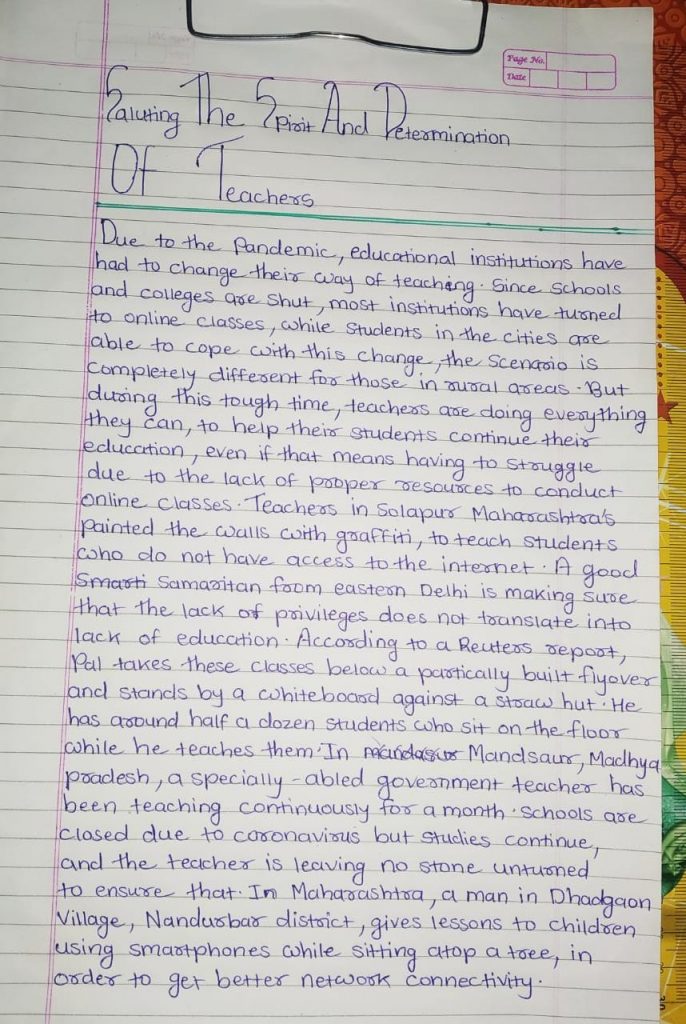 Page No.
Date
Saluting The Spirit And Determination
Of Teachers
Due to the Pandemic, educational institutions have
had to change their way of teaching. Since Schools
and colleges are shut, most institutions have turned
to online classes, while students in the cities are
able to cope with this change, the scenario is
completely different for those in rural areas. But
during this tough time, teachers are doing everything
they can, to help their students continue their
education, even if that means having to struggle
due to the lack of proper resources to conduct
online classes. Teachers in Solapur Maharashtra's
painted the walls with graffiti, to teach students
who do not have access to the internet. A good
Smarti Samaritan from eastern Delhi is making sure
that the lack of privileges does not translate into
lack of education. According to a Reuters report,
Pal takes these classes below a partically built flyover
and stands by a whiteboard against a straw hut. He
has around half a dozen students who sit on the floor
while he teaches them. In mandasur Mandsaur, Madhya
pradesh, a specially-abled government teacher has
been teaching continuously for a month. schools are
closed due to coronavirus but studies continue,
and the teacher is leaving no stone unturned
to ensure that. In Maharashtra, a man in Dhadgaon
Village, Nandurbar district, gives lessons to children
using smartphones while sitting atop a tree, in
order to get better network connectivity.